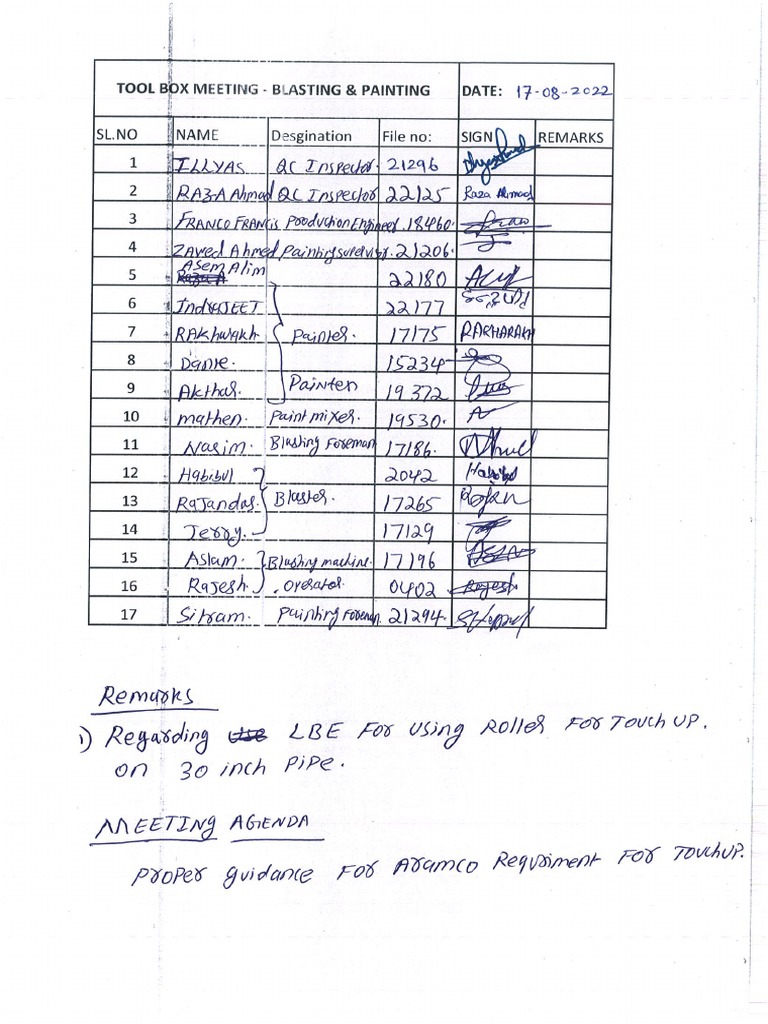 TOOL BOX MEETING - BLASTING & PAINTING DATE: 17-08-2022
SL.NO NAME Desgination File no: SIGN REMARKS
1 ILLYAS QC Inspector. 21296
2 RAZA Ahmad QC Inspector 22125 Raza Ahmad
3 FRANCO FRANCIS Production Engineer. 18460.
4 ZAVED Ahmed Painting supervisor. 21206.
5 Asem Alim 22180
6 INDRAJEET 22177
7 RAKhwakh Painter. 17175 RAKHARAKH
8 Danre. 15234
9 Akthar. Painter 19372
10 mathen. Paint mixer. 19530.
11 Nasim. Blasting Foreman 17186.
12 Habibul 2042
13 Rajandas. Blaster. 17265 Rajan
14 Jerry. 17129
15 Aslam. Blasting machine. 17196
16 Rajesh. operator. 0402 Rajesh
17 Sitram. Painting Foreman. 21294.
Remarks
1) Regarding LBE For using Roller For Touch UP.
on 30 inch Pipe.
MEETING AGENDA
Proper guidance For Aramco Requriment For Touch UP.